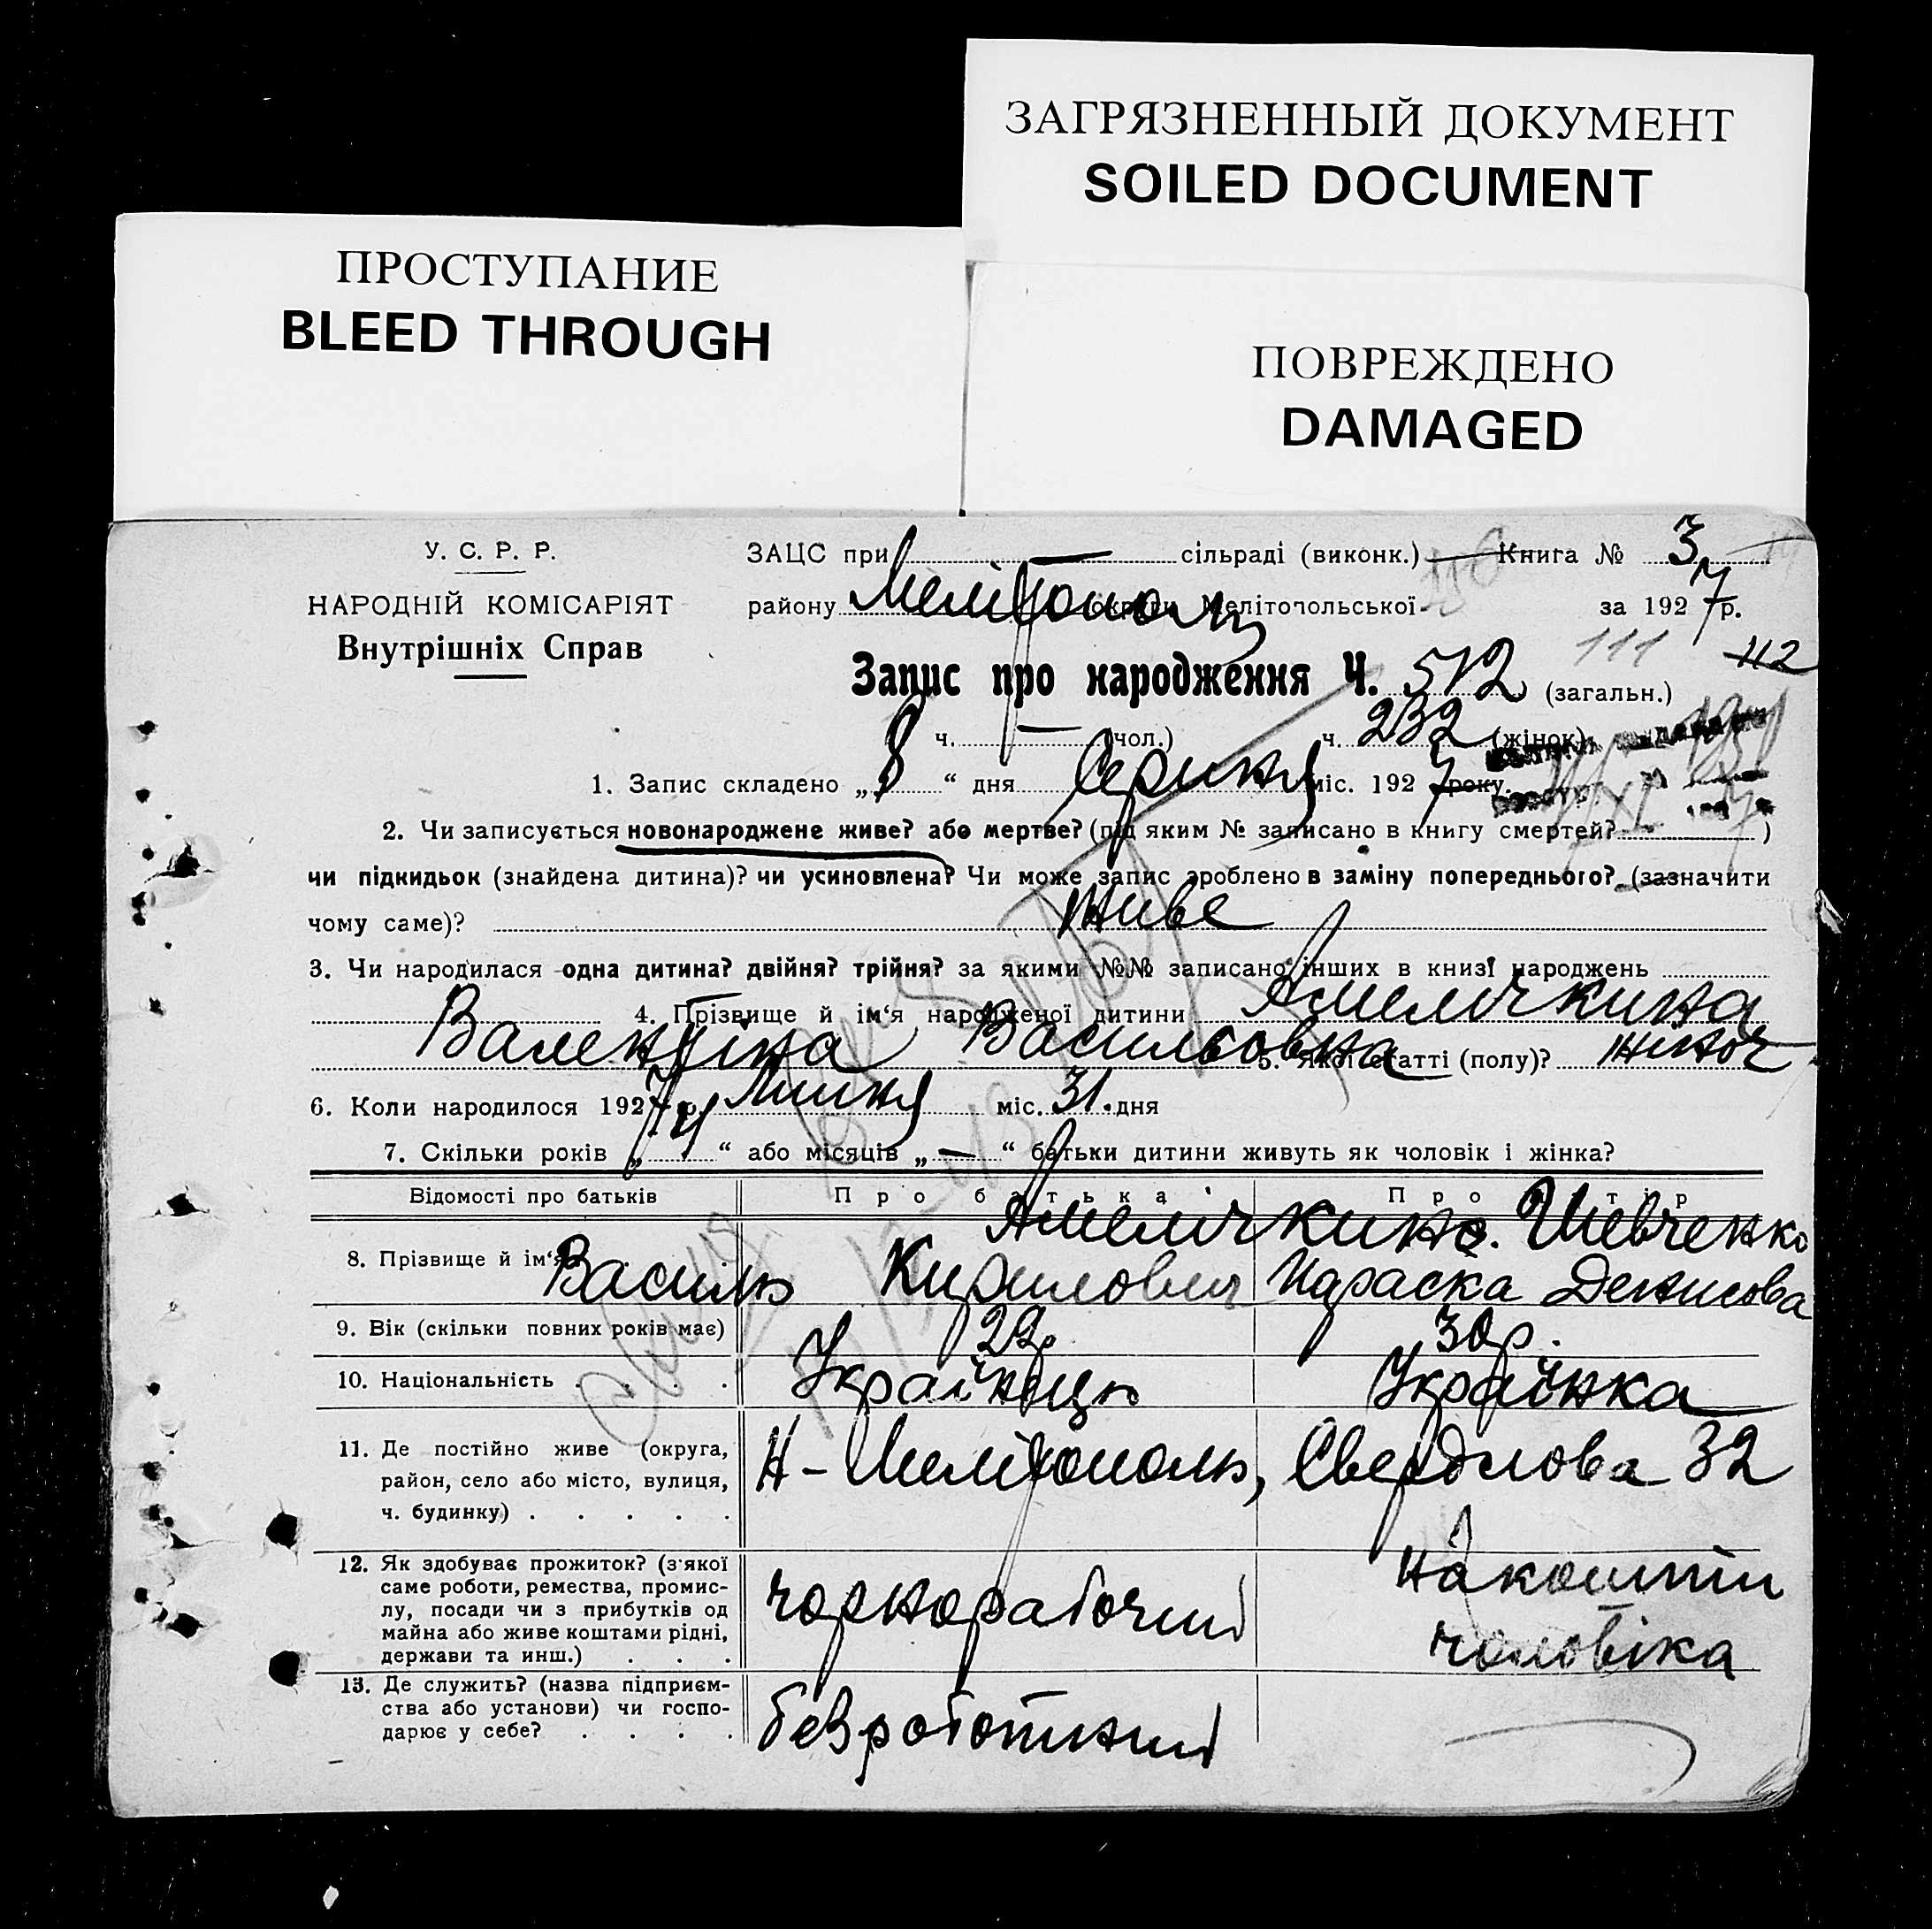 ЗАГРЯЗНЕННЫЙ ДОКУМЕНТ
SOILED DOCUMENT
ПРОСТУПАНИЕ
BLEED THROUGH
ПОВРЕЖДЕНО
DAMAGED
У. С. Р. Р.
НАРОДНІЙ КОМІСАРІЯТ
Внутрішніх Справ
ЗАЦС при — сільраді (виконк.) Книга № 3
району Мелітополь округи Мелітопольської за 1927 р.
111 112
Запис про народження Ч. 512 (загальн.)
ч. — (чол.) ч. 232 (жінок)
1. Запис складено „8“ дня Серпня міс. 1927 року.
2. Чи записується новонароджене живе? або мертве? (під яким № записано в книгу смертей? )
чи підкидьок (знайдена дитина)? чи усиновлена? Чи може запис зроблено в заміну попереднього? (зазначити
чому саме)? живе
3. Чи народилася одна дитина? двійня? трійня? за якими №№ записано інших в книзі народжень
4. Прізвище й ім‘я народженої дитини Амеличкина
Валентіна Васильовна 5. Якої статті (полу)? жіноч
6. Коли народилося 1927 р. Липня міс. 31 дня
7. Скільки років „4“ або місяців „—“ батьки дитини живуть як чоловік і жінка?
Відомості про батьків Про батька Про матір
8. Прізвище й ім‘я Амеличкин Василь Кирилович Шевченко Параска Денисова
9. Вік (скільки повних років має) 29р 30р.
10. Національність . . . . Українець Українка
11. Де постійно живе (округа,
район, село або місто, вулиця,
ч. будинку) . . . . .
Н-Мелітополь, Свердлова 32
12. Як здобуває прожиток? (з‘якої
саме роботи, ремества, промис-
лу, посади чи з прибутків од
майна або живе коштами рідні,
держави та инш.) . . .
чорнорабочий
на кошти
чоловіка
13. Де служить? (назва підприєм-
ства або установи) чи госпо-
дарює у себе? . . . .
безроботний